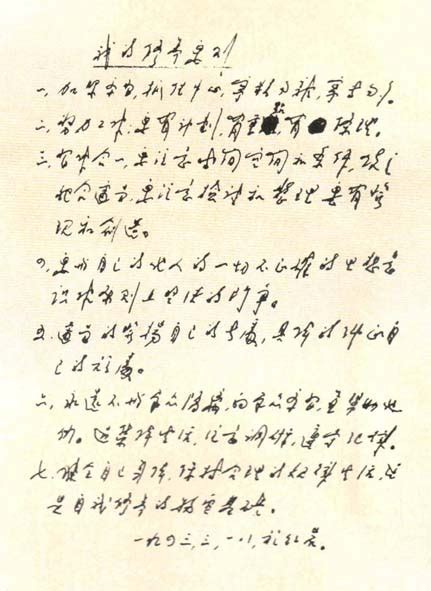 我的修养要则
一、加紧学习,抓住中心,宁精勿杂,宁专勿多。
二、努力工作,要有计划,有重点,有条理。
三、习作合一,要注意时间空间和条件,使之
配合适当,要注意检讨和整理,要有发
现和创造。
四、要与自己的他人的一切不正确的思想意
识作原则上坚决的斗争。
五、适当的发扬自己的长处,具体的纠正自
己的短处。
六、永远不与群众隔离,向群众学习,并帮助他
们。过集体生活,注意调研,遵守纪律。
七、健全自己身体,保持合理的规律生活,这
是自我修养的物质基础。
一九四三,三,一八,于红岩。